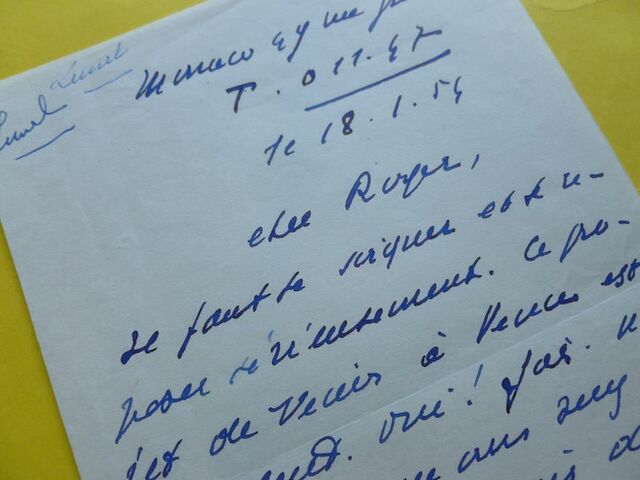 Lunel Lunel
Monaco 49 rue
T. 011.47
le 18.1.54
cher Roger,
Il faut se soigner et se re-
poser sérieusement. Ce pro-
jet de Venir à Vence est
oui! J'ai
ans